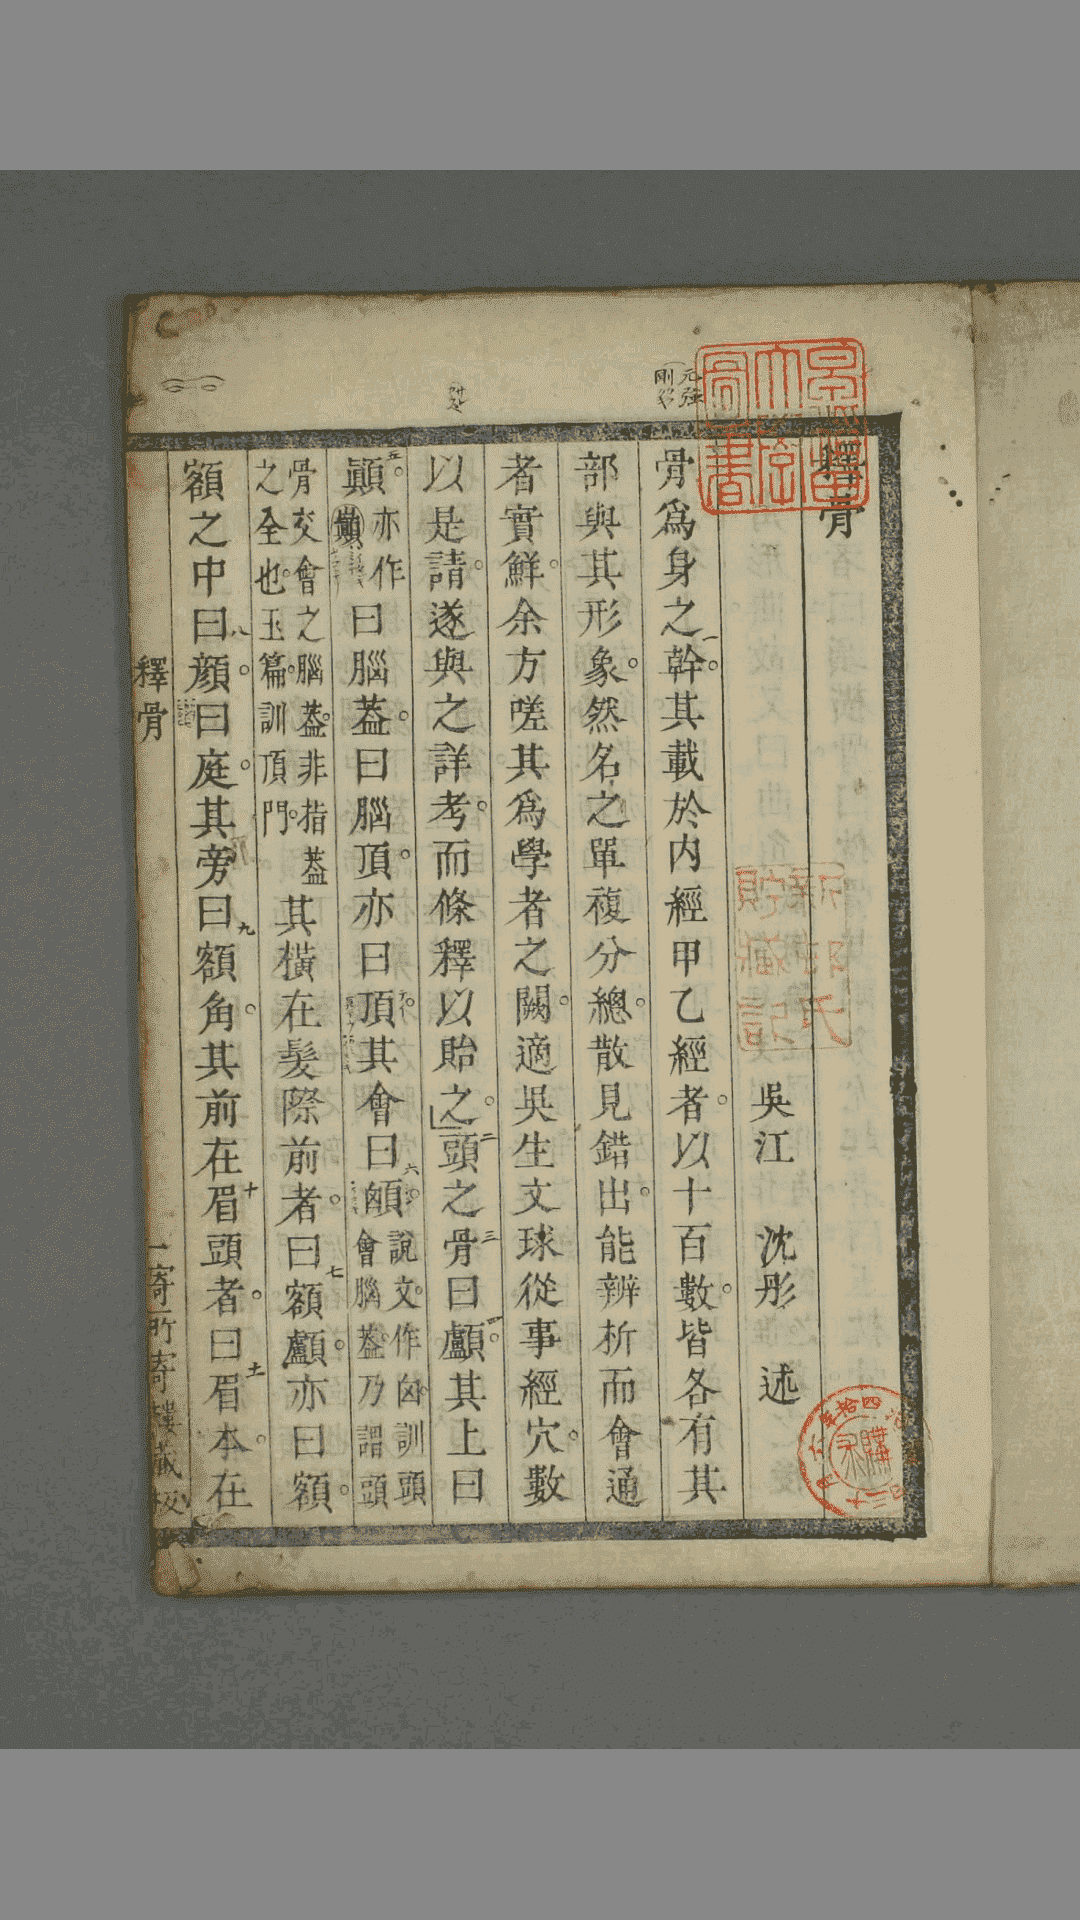 釋骨
吳江 沈彤 述
骨爲身之幹。其載於内經甲乙經者。以十百數。皆各有其
部與其形象。然名之單複分總。散見錯出。能辨析而會通
者實鮮。余方嗟其爲學者之闕。適吳生文球從事經穴。數
以是請。遂與之詳考。而條釋以貽之。頭之骨曰顱。其上曰
顚。亦作巔曰腦葢。曰腦頂。亦曰頂。其會曰䪿。說文。作囟。訓頭
會腦葢。乃謂頭
骨交會之腦葢。非指葢
之全也。玉篇。訓頂門。其橫在髮際前者。曰額顱。亦曰額。
額之中曰顔。曰庭。其旁曰額角。其前在眉頭者。曰眉本。在
釋骨
一
寄所寄樓藏板
元強
剛
一
二
三
四
五
六
七
八
九
十
十一
新邨氏
貯藏記
購